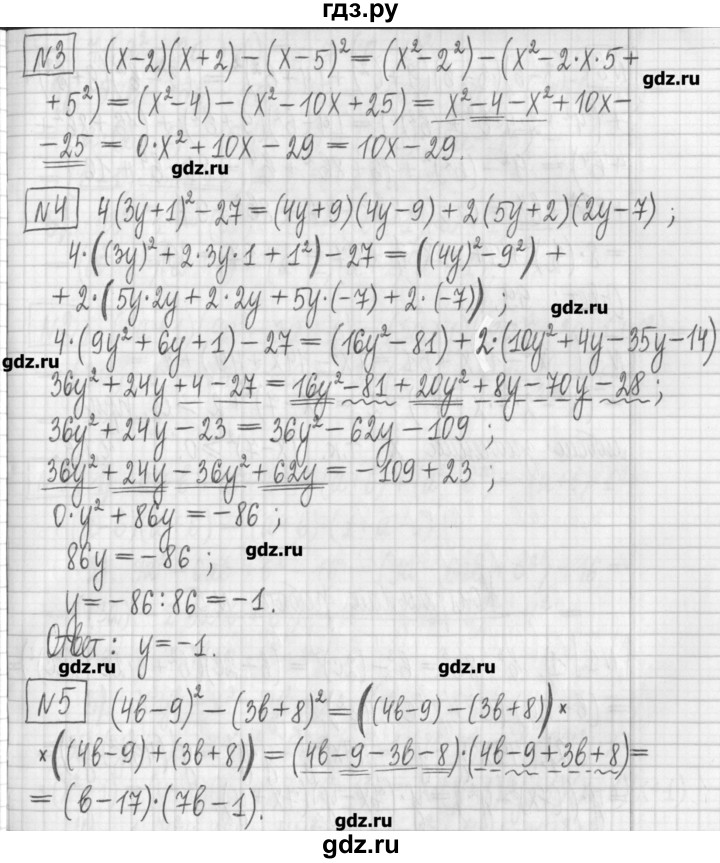 гдз.ру
№3 (x-2)(x+2)-(x-5)²=(x²-2²)-(x²-2·x·5+
gdz.ru
+5²)=(x²-4)-(x²-10x+25)=x²-4-x²+10x-
-25=0·x²+10x-29=10x-29.
gdz.ru
№4 4(3y+1)²-27=(4y+9)(4y-9)+2(5y+2)(2y-7);
4·((3y)²+2·3y·1+1²)-27=((4y)²-9²)+
+2·(5y·2y+2·2y+5y·(-7)+2·(-7));
gdz.ru
4·(9y²+6y+1)-27=(16y²-81)+2·(10y²+4y-35y-14)
gdz.ru
36y²+24y+4-27=16y²-81+20y²+8y-70y-28;
36y²+24y-23=36y²-62y-109;
36y²+24y-36y²+62y=-109+23;
0·y²+86y=-86;
gdz.ru
86y=-86;
y=-86:86=-1.
Ответ: y=-1.
gdz.ru gdz.ru
№5 (4b-9)²-(3b+8)²=((4b-9)-(3b+8))×
×((4b-9)+(3b+8))=(4b-9-3b-8)·(4b-9+3b+8)=
=(b-17)·(7b-1).
gdz.ru
gdz.ru